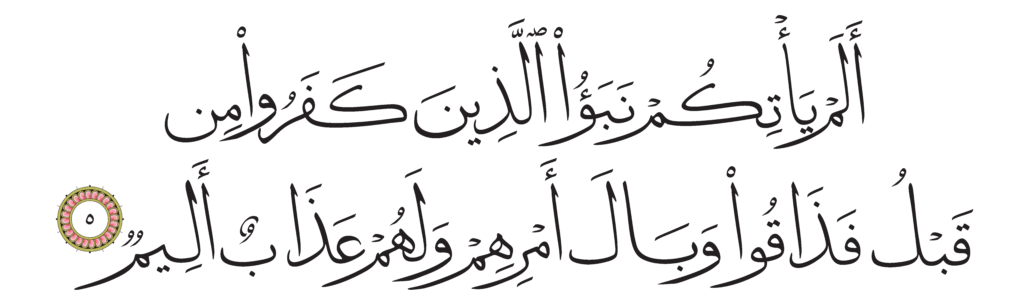 أَلَمْ يَأْتِكُمْ نَبَؤُا۟ ٱلَّذِينَ كَفَرُوا۟ مِن
قَبْلُ فَذَاقُوا۟ وَبَالَ أَمْرِهِمْ وَلَهُمْ عَذَابٌ أَلِيمٌ ٥